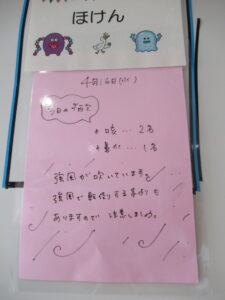 ほけん
4月16日(水)
今日の欠席
*咳… 2名
*鼻水… 1名
強風が吹いています。
強風で転倒する事故も
ありますので 注意しましょう。